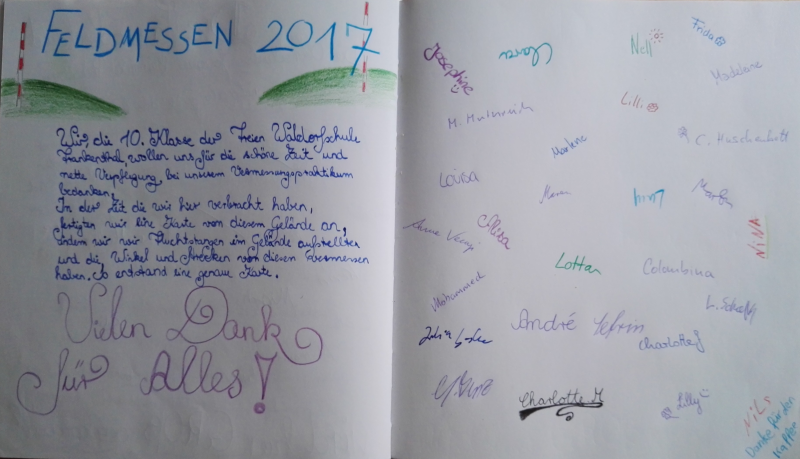 FELDMESSEN 2017
Wir, die 10. Klasse der Freien Waldorfschule
Frankenthal, wollen uns für die schöne Zeit und
nette Verpflegung bei unserem Vermessungspraktikum
bedanken.
In der Zeit die wir hier verbracht haben,
fertigten wir eine Karte von diesem Gelände an,
indem wir wir Fluchtstangen im Gelände aufstellten
und die Winkel und Strecken von diesen vermessen
haben. So entstand eine genaue Karte.
Vielen Dank
für Alles!
Josephine
Clara
Nell
Frida
Madelaine
Lilli
Marlene
Louisa
Luid
Marlon
Alisa
NiNA
Lotta
Colombina
Mohammed
André
Charlotte
Charlotte H
Lilly
NiLS
Danke für den
Kaffee